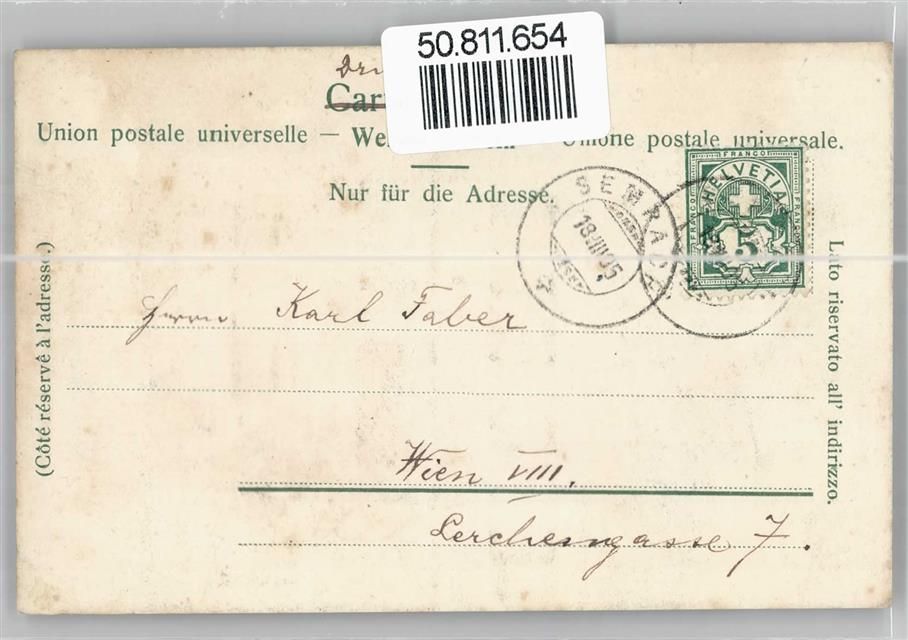 50.811.654
Union postale universelle — We
Unione postale universale.
Nur für die Adresse.
FRANCO
HELVETIA
FRANCO
FRANCO
5
18.III.05
(Côté réservé à l'adresse.)
Lato riservato all' indirizzo.
Herrn Karl Faber
Wien VIII.
Lerchengasse 7.